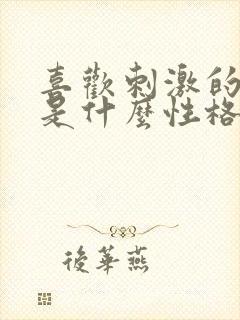 喜歡刺激的
是什麼性格
後華燕